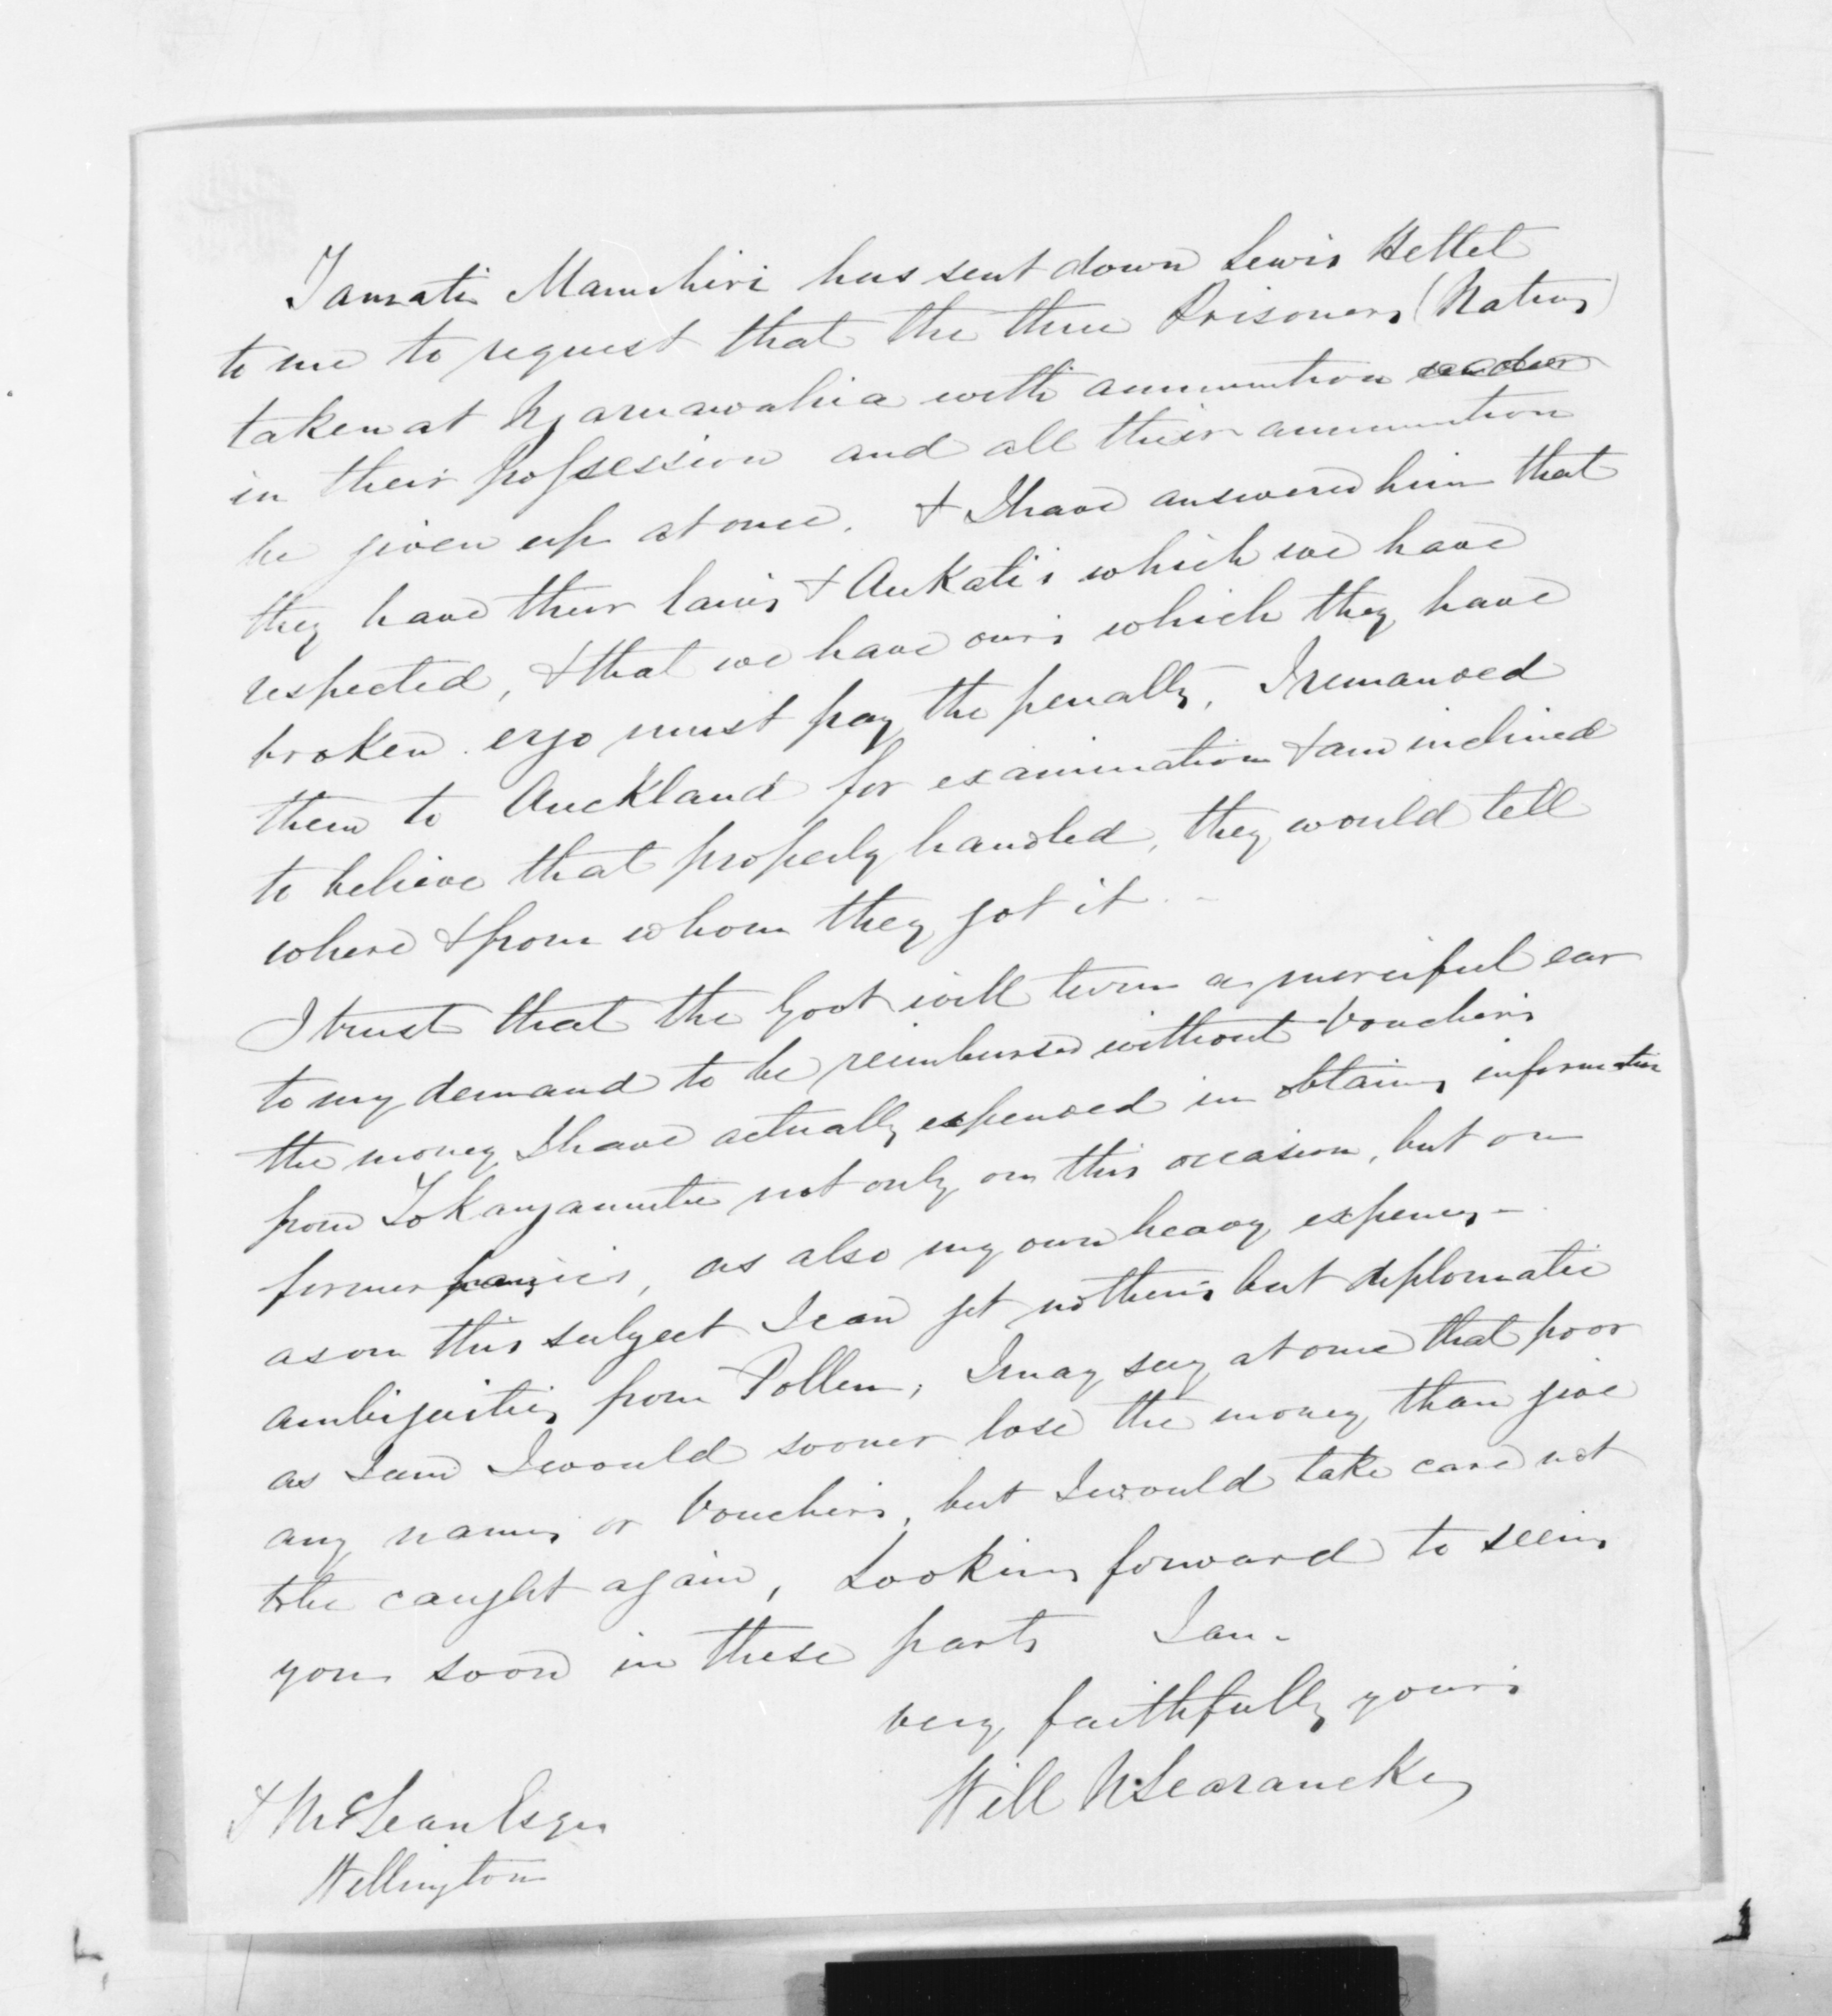 Tamati Manuhiri has sent down Lewis Hettet
to me to request that the three Prisoners (Natives)
taken at Ngaruawahia with ammunition
in their possession and all their ammunition
be given up at once. & I have answered him that
they have their laws & Aukatis which we have
respected, & that we have ours which they have
broken. ergo must pay the penalty, I remanded
them to Auckland for examination & am inclined
to believe that properly handled, they would tell
where & from whom they got it. -
I trust that the Govt will turn a merciful ear
to my demand to be reimbursed without Vouchers
the money I have actually expended in obtaining information
from Tokangamutu not only on this occasion, but on
former panics, as also my own heavy expenses -
as on this subject I can get nothing but diplomatic
ambiguities from Pollen, I may say at once that poor
as I am I would sooner lose the money than give
any names or Vouchers, but I would take care not
to be caught again, Looking forward to seeing
you soon in these parts I am -
very faithfully yours
Will N Searancke
McLean Esqre
Wellington